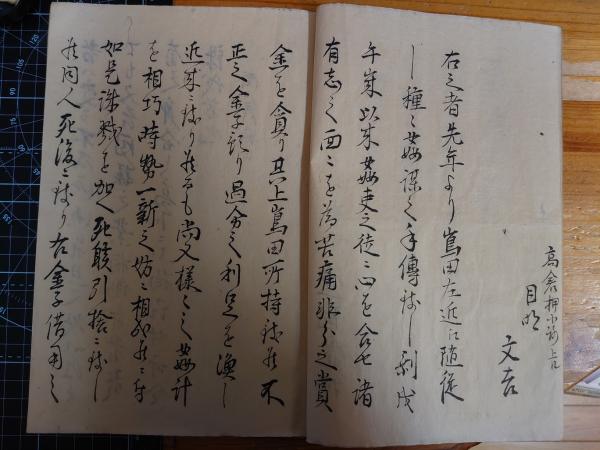 高倉押小路上ル
目明
文吉
右之者先年より嶌田左近に随従
し種々姦謀之手傳致し剰戊
午年以来姦吏之徒に心を合せ諸
有志之面々を為苦痛非分之賞
金を貪り其上嶌田所持致候不
正之金子預り過分之利足を漁し
近来に致り候而も尚又様々之姦計
を相巧時勢一新之妨に相成候に付
如是誅戮を加へ死骸引捨に致し
候同人死後に致り右金子借用之